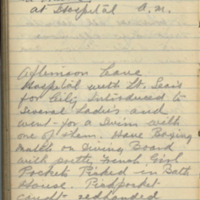 at Hospital A.M.
Afternoon Leave
Hospital with Lt. Lewis
for City. Introduced to
Several Ladies and
went for a Swim with
one of them. Have Boxing
Match on Diving Board
with pretty French Girl
Pockets Picked in Bath
House. Pickpocket
caught redhanded